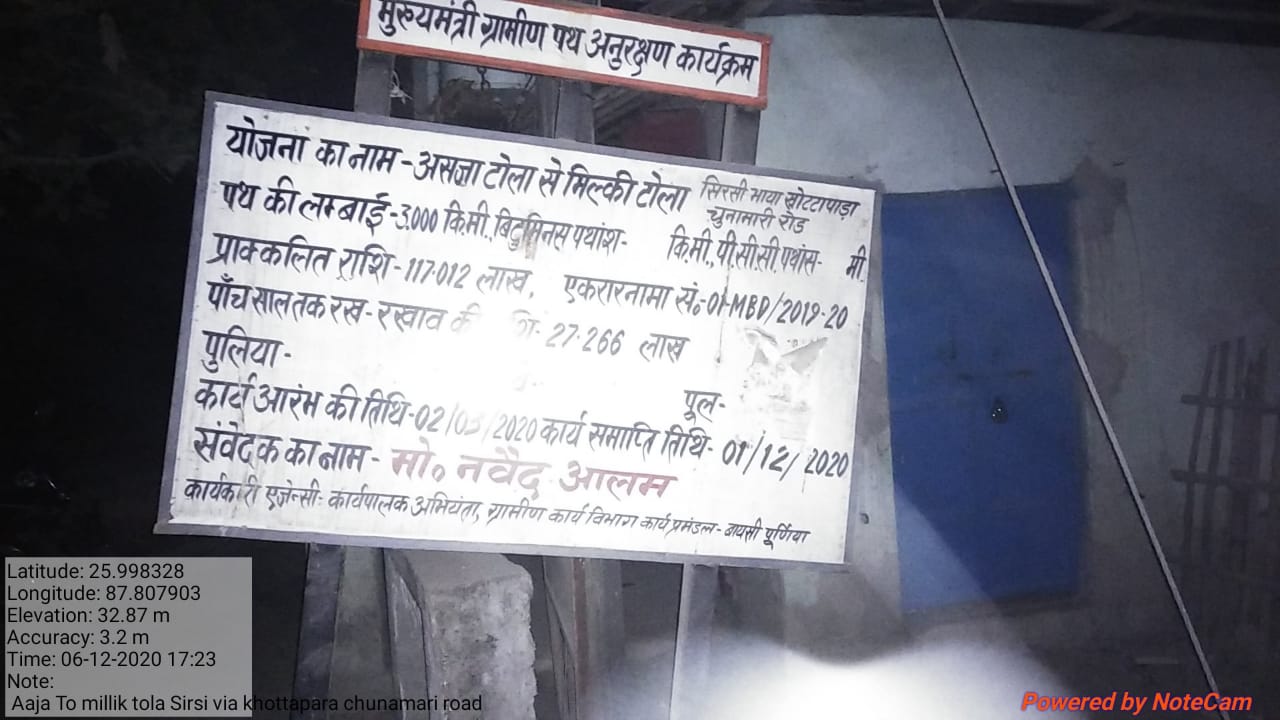 मुख्यमंत्री ग्रामीण पथ अनुरक्षण कार्यक्रम
योजना का नाम - असजा टोला से मिल्की टोला सिरसी भाया खोट्टापाड़ा
चुनामारी रोड
पथ की लम्बाई - 3.000 कि.मी. बिटुमिनस पथांश - कि.मी. पी.सी.सी. पथांस - मी.
प्राक्कलित राशि - 117.012 लाख, एकरारनामा सं०- 01 MBD/2019-20
पाँच साल तक रख - रखाव की 27.266 लाख
पुलिया - पूल -
कार्य आरंभ की तिथि - 02/03/2020 कार्य समाप्ति तिथि - 01/12/2020
संवेदक का नाम - मो० नवैद आलम
कार्यकारी एजेन्सी: कार्यपालक अभियंता, ग्रामीण कार्य विभाग कार्य प्रमंडल - बायसी पूर्णिया
Latitude: 25.998328
Longitude: 87.807903
Elevation: 32.87 m
Accuracy: 3.2 m
Time: 06-12-2020 17:23
Note:
Aaja To millik tola Sirsi via khottapara chunamari road
Powered by NoteCam